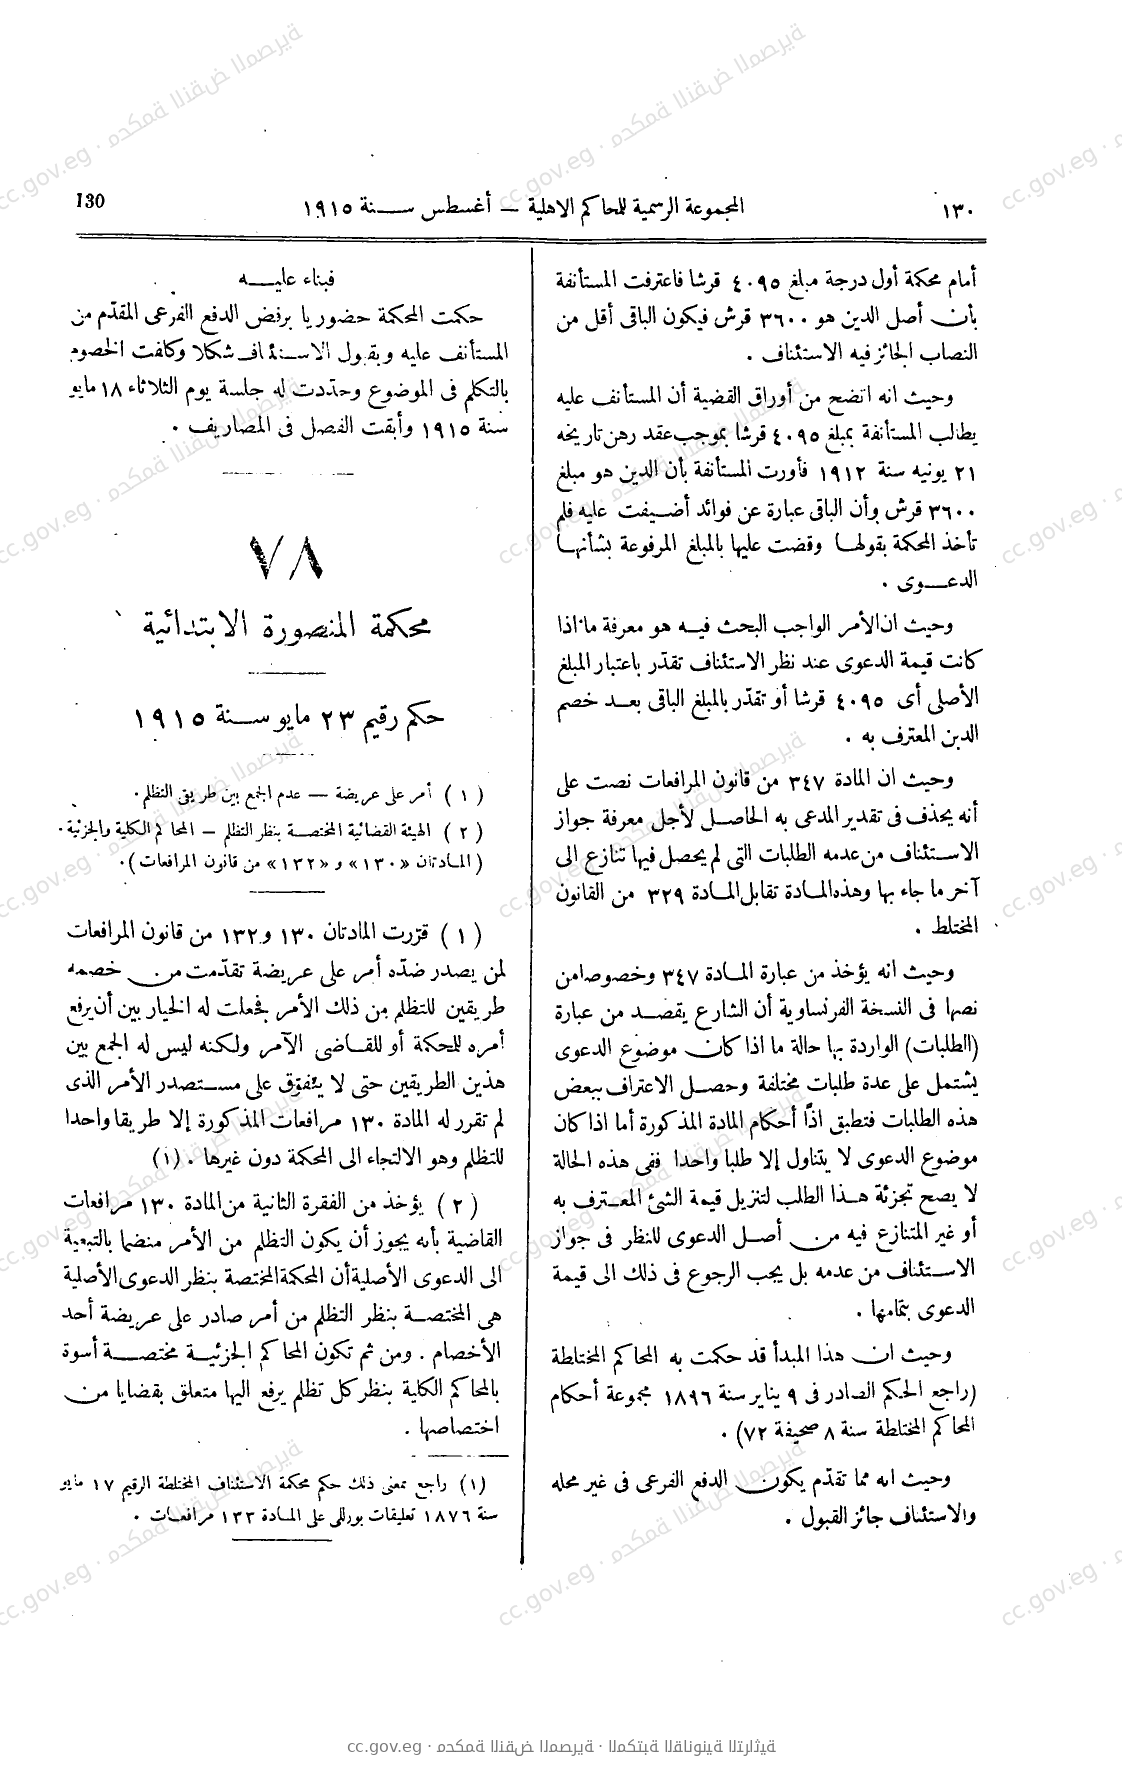 ١٣٠
المجموعة الرسمية للمحاكم الاهلية — أغسطس سنة ١٩١٥
130
أمام محكمة أول درجة مبلغ ٤٠٩٥ قرشا فاعترفت المستأنفة
بأن أصل الدين هو ٣٦٠٠ قرش فيكون الباقى أقل من
النصاب الجائز فيه الاستئناف .
وحيث انه اتضح من أوراق القضية أن المستأنف عليه
يطالب المستأنفة بمبلغ ٤٠٩٥ قرشا بموجب عقد رهن تاريخه
٢١ يونيه سنة ١٩١٢ فأورت المستأنفة بأن الدين هو مبلغ
٣٦٠٠ قرش وأن الباقى عبارة عن فوائد أضيفت عليه فلم
تأخذ المحكمة بقولها وقضت عليها بالمبلغ المرفوعة بشأنها
الدعوى .
وحيث ان الأمر الواجب البحث فيه هو معرفة ما اذا
كانت قيمة الدعوى عند نظر الاستئناف تقدّر باعتبار المبلغ
الأصلى أى ٤٠٩٥ قرشا أو تقدّر بالمبلغ الباقى بعد خصم
الدين المعترف به .
وحيث ان المادة ٣٤٧ من قانون المرافعات نصت على
أنه يحذف فى تقدير المدعى به الحاصل لأجل معرفة جواز
الاستئناف من عدمه الطلبات التى لم يحصل فيها تنازع الى
آخر ما جاء بها وهذه المادة تقابل المادة ٣٢٩ من القانون
المختلط .
وحيث انه يؤخذ من عبارة المادة ٣٤٧ وخصوصا من
نصها فى النسخة الفرنساوية أن الشارع يقصد من عبارة
(الطلبات) الواردة بها حالة ما اذا كان موضوع الدعوى
يشتمل على عدة طلبات مختلفة وحصل الاعتراف ببعض
هذه الطلبات فتطبق اذًا أحكام المادة المذكورة أما اذا كان
موضوع الدعوى لا يتناول إلا طلبا واحدا ففى هذه الحالة
لا يصح تجزئة هذا الطلب لتنزيل قيمة الشئ المعترف به
أو غير المتنازع فيه من أصل الدعوى للنظر فى جواز
الاستئناف من عدمه بل يجب الرجوع فى ذلك الى قيمة
الدعوى بتمامها .
وحيث ان هذا المبدأ قد حكمت به المحاكم المختلطة
(راجع الحكم الصادر فى ٩ يناير سنة ١٨٩٦ مجموعة أحكام
المحاكم المختلطة سنة ٨ صحيفة ٧٢) .
وحيث انه مما تقدّم يكون الدفع الفرعى فى غير محله
والاستئناف جائز القبول .
فبناء عليه
حكمت المحكمة حضوريا برفض الدفع الفرعى المقدّم من
المستأنف عليه وبقبول الاستئناف شكلا وكلفت الخصوم
بالتكلم فى الموضوع وحدّدت له جلسة يوم الثلاثاء ١٨ مايو
سنة ١٩١٥ وأبقت الفصل فى المصاريف .
٧٨
محكمة المنصورة الابتدائية
حكم رقيم ٢٣ مايو سنة ١٩١٥
( ١ ) أمر على عريضة — عدم الجمع بين طريقى التظلم .
( ٢ ) الهيئة القضائية المختصة بنظر التظلم — المحاكم الكلية والجزئية .
(المادتان «١٣٠» و «١٣٢» من قانون المرافعات) .
( ١ ) قرّرت المادتان ١٣٠ و١٣٢ من قانون المرافعات
لمن يصدر ضدّه أمر على عريضة تقدّمت من خصمه
طريقين للتظلم من ذلك الأمر فجعلت له الخيار بين أن يرفع
أمره للمحكمة أو للقاضى الآمر ولكنه ليس له الجمع بين
هذين الطريقين حتى لا يتفوّق على مستصدر الأمر الذى
لم تقرر له المادة ١٣٠ مرافعات المذكورة إلا طريقا واحدا
للتظلم وهو الالتجاء الى المحكمة دون غيرها . (١)
( ٢ ) يؤخذ من الفقرة الثانية من المادة ١٣٠ مرافعات
القاضية بأنه يجوز أن يكون التظلم من الأمر منضما بالتبعية
الى الدعوى الأصلية أن المحكمة المختصة بنظر الدعوى الأصلية
هى المختصة بنظر التظلم من أمر صادر على عريضة أحد
الأخصام . ومن ثم تكون المحاكم الجزئية مختصة أسوة
بالمحاكم الكلية بنظر كل تظلم يرفع اليها متعلق بقضايا من
اختصاصها .
(١) راجع بمعنى ذلك حكم محكمة الاستئناف المختلطة الرقيم ١٧ مايو
سنة ١٨٧٦ تعليقات بورللى على المادة ١٣٣ مرافعات .
cc.gov.eg · محكمة النقض المصرية · المكتبة القانونية التراثية